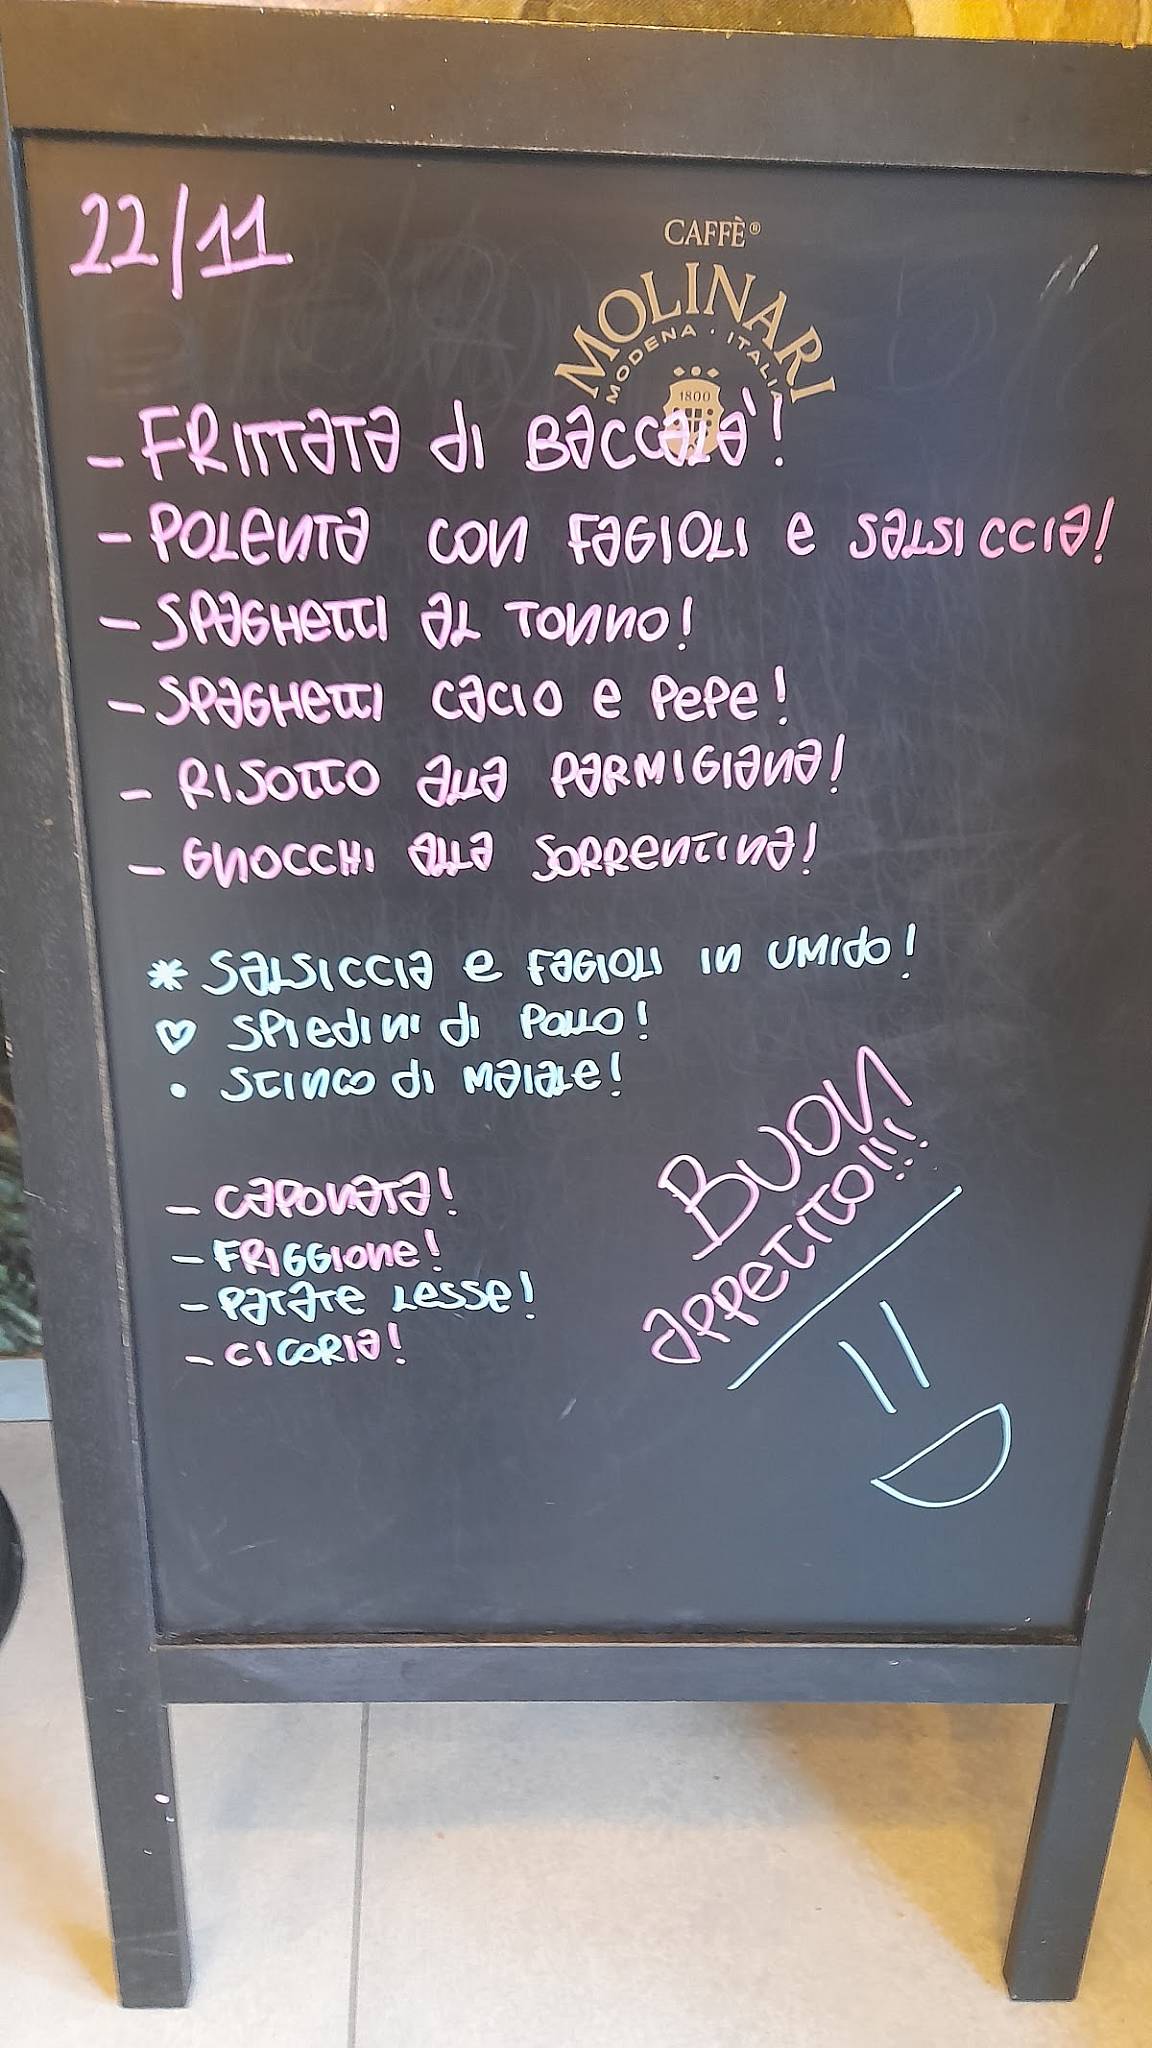 22/11
CAFFÈ®
MOLINARI
MODENA · ITALIA
1800
- FRITTATA di BACCALA'!
- POLENTA CON FAGIOLI e SALSICCIA!
- SPAGHETTI AL TONNO!
- SPAGHETTI CACIO e PEPE!
- RISOTTO ALLA PARMIGIANA!
- GNOCCHI ALLA SORRENTINA!
* SALSICCIA e FAGIOLI IN UMIDO!
♡ SPIEDINI di POLLO!
• STINCO di MAIALE!
- CAPONATA!
- FRIGGIONE!
- PATATE LESSE!
- CICORIA!
BUON
APPETITO!!!